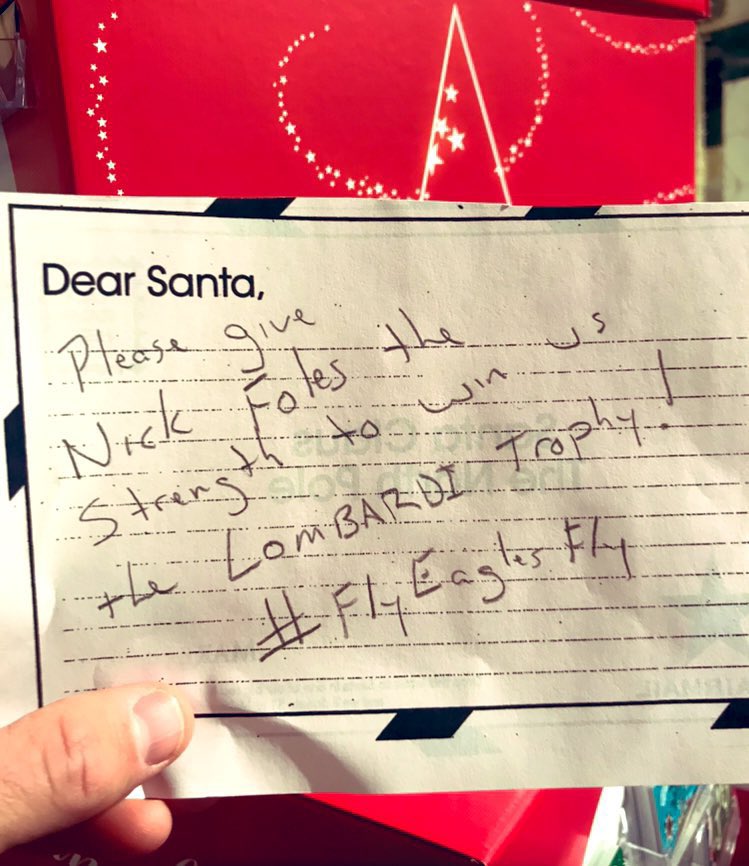 Dear Santa,
Please give
Nick Foles the
Strength to win us
the LOMBARDI Trophy!
#FlyEagles Fly